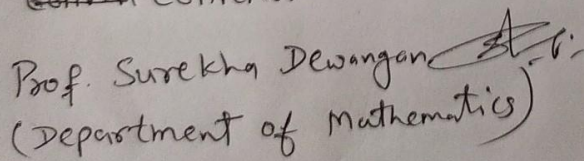 Prof. Surekha Dewangan
(Department of Mathematics)